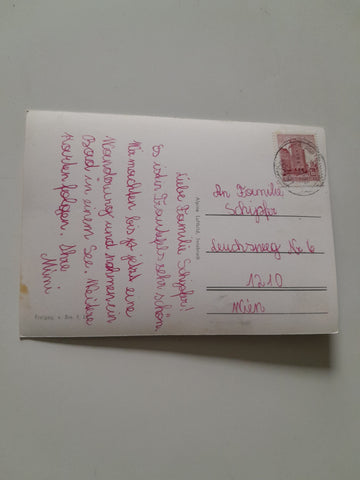 Liebe Familie Schipfer!
Es ist in sehr schön.
Wir machten bis jetzt eine
Wanderung und nahmen ein
Bad in einem See. Weitere
Karten folgen. Ihre
Mimi
Alpine Luftbild, Innsbruck
An Familie
Schipfer
Leuchsweg Nr 6
1210
Wien